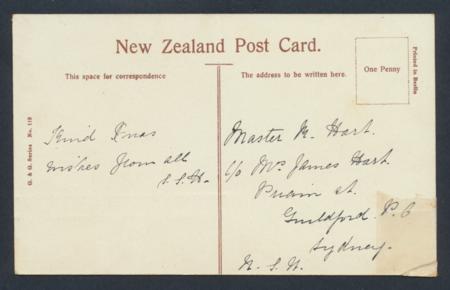 New Zealand Post Card.
This space for correspondence
The address to be written here.
One Penny
Printed in Berlin
G. & G. Series No. 119
Kind Xmas
wishes from all
S.S.H.
Master N. Hart.
c/o Mr. James Hart
st.
Guildford. P.O
Sydney.
N.S.W.